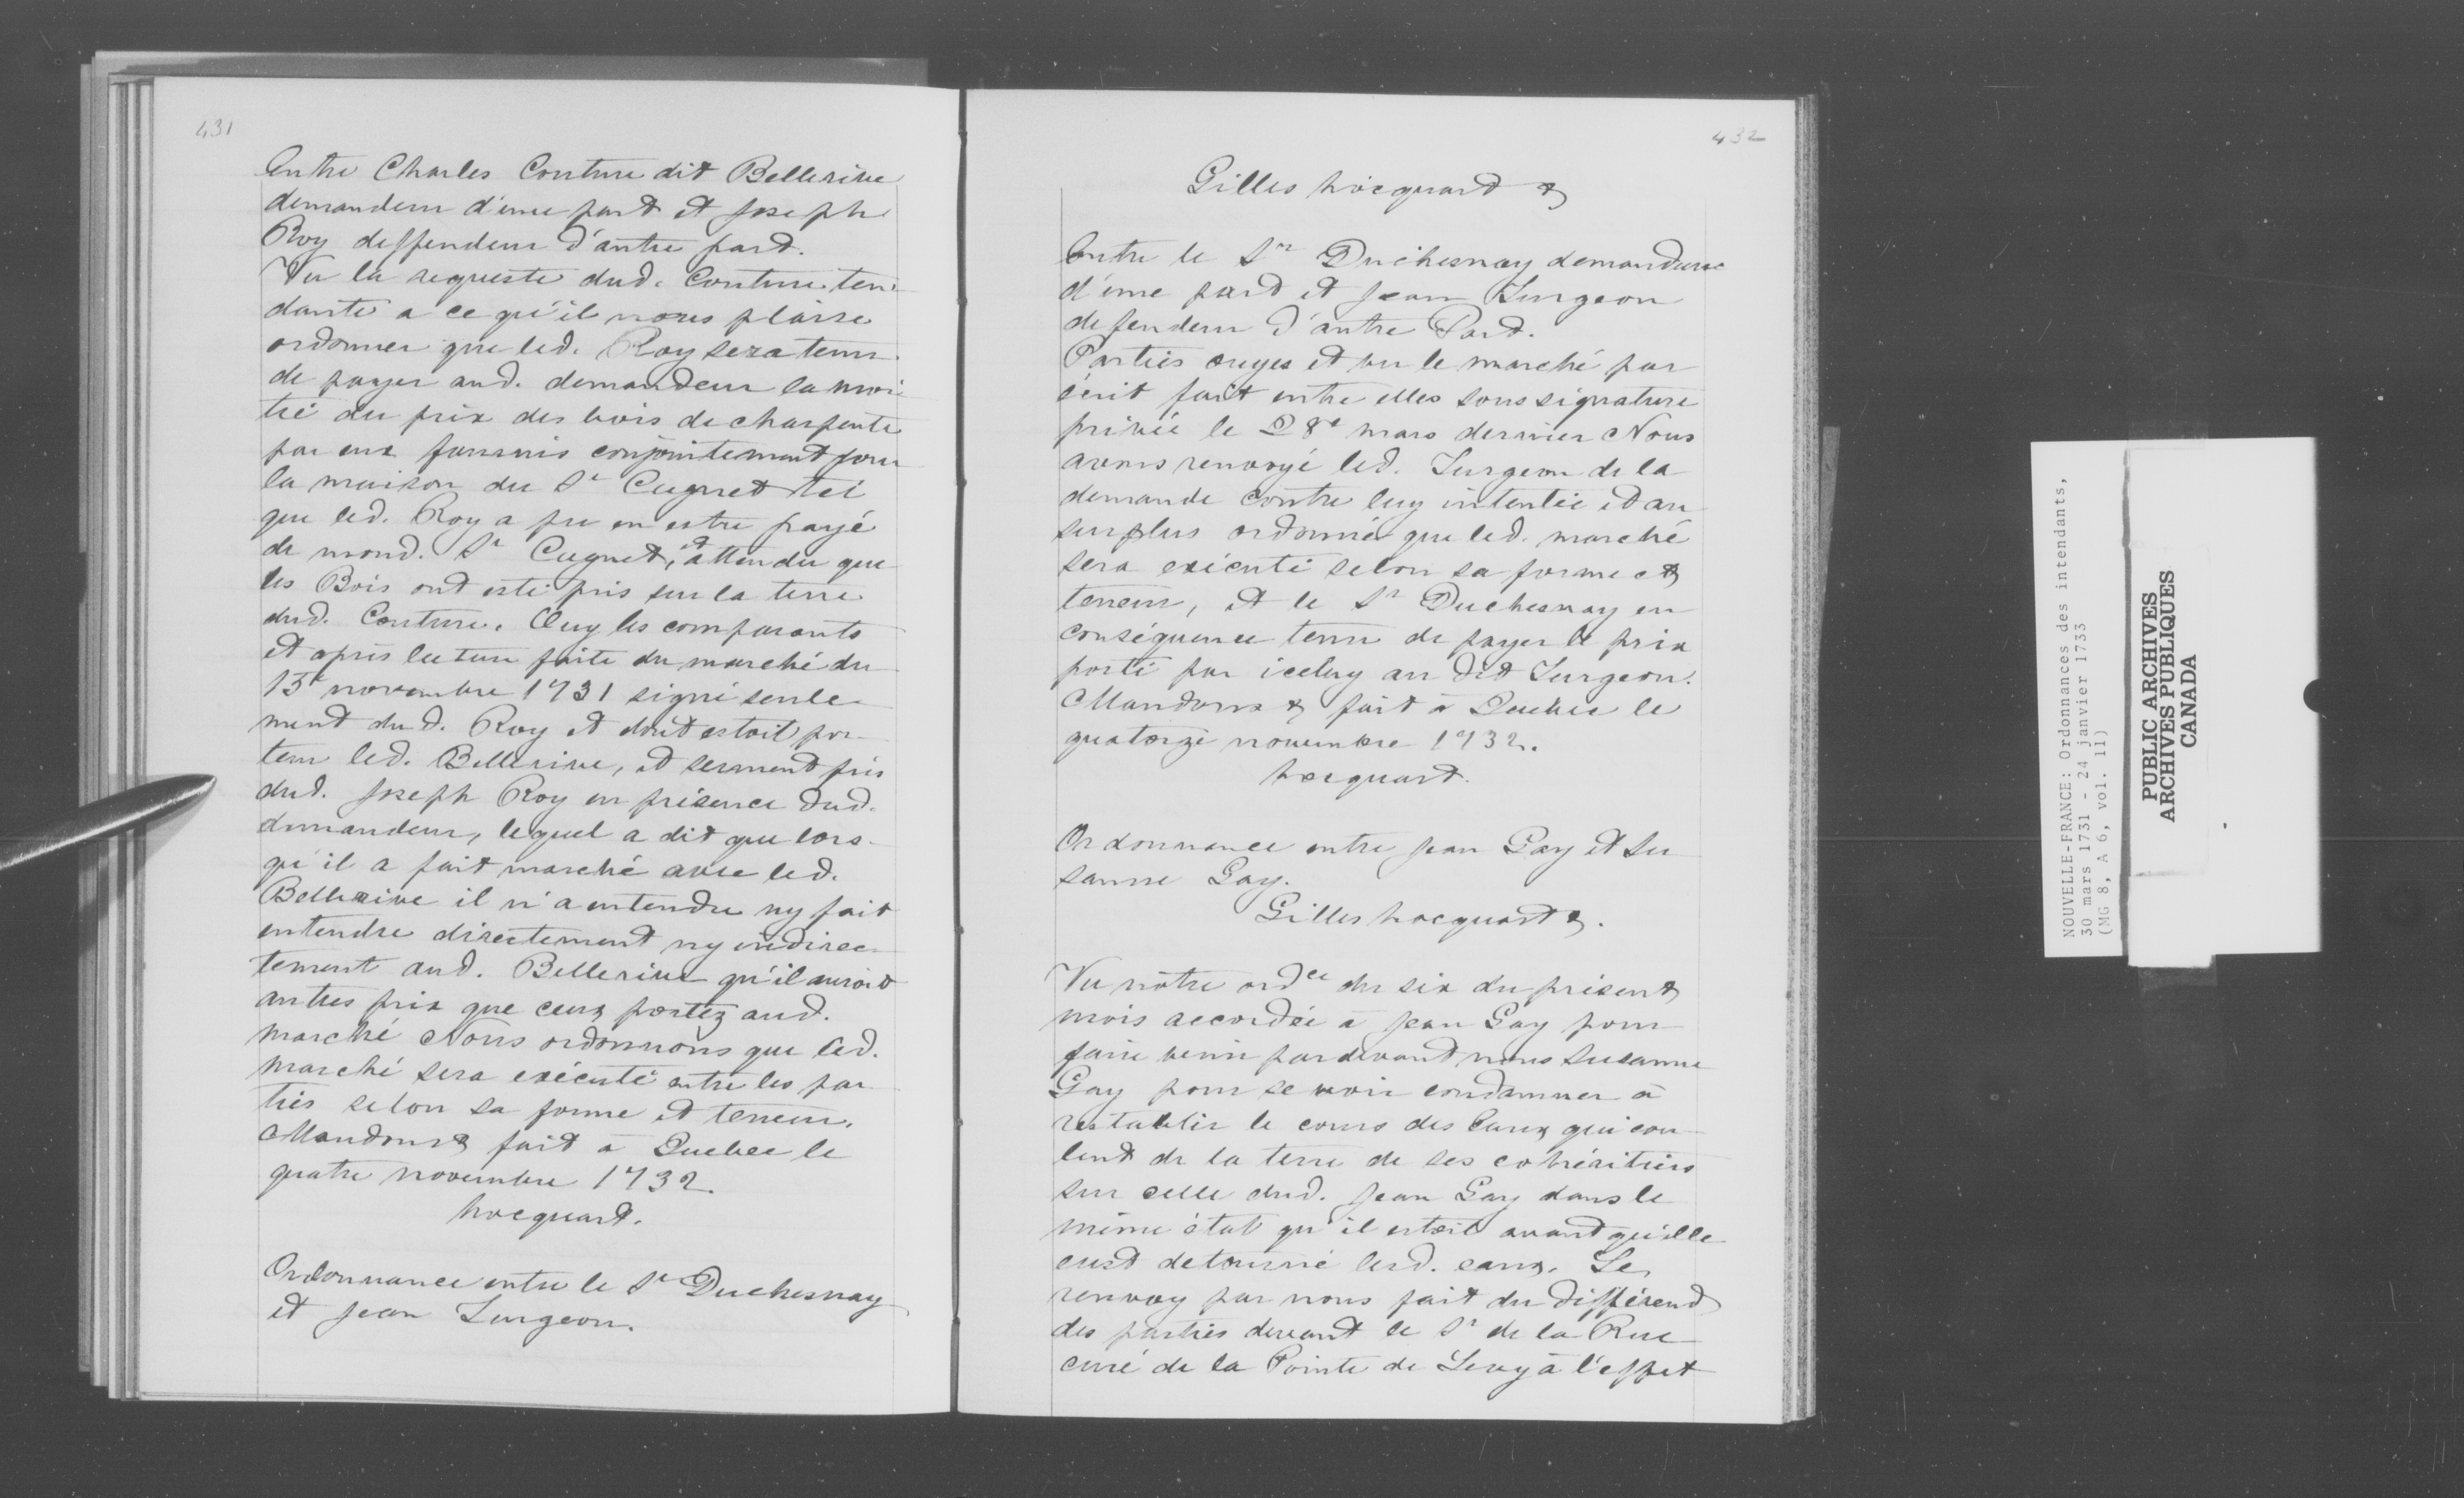 431
Entre Charles Couture dit Bellerive
demandeur d'une part et Joseph
Roy deffendeur d'autre part.
Vu la requeste dud. Couture ten-
dante a ce qu'il nous plaise
ordonner que led. Roy sera tenu
de payer aud. demandeur la moi-
tié du prix des bois de charpente
par eux fournis conjointement pour
la maison du Sr Cugnet tel
que led. Roy a pu en estre payé
de mond. Sr Cugnet, et attendu que
les Bois ont esté pris sur la terre
dud. Couture. Ouy les comparants
et après lecture faite du marché du
13e novembre 1731 signé seule-
ment dud. Roy et dont estoit por-
teur led. Bellerive, et serment pris
dud. Joseph Roy en présence dud.
demandeur, lequel a dit que lors-
qu'il a fait marché avec led.
Bellerive il n'a entendu ny fait
entendre directement ny indirec-
tement aud. Bellerive qu'il auroit
autres prix que ceux portez aud.
marché Nous ordonnons que led.
marché sera exécuté entre les par-
ties selon sa forme et teneur.
Mandons & fait à Quebec le
quatre novembre 1732.
hocquart.
Ordonnance entre le Sr Duchesnay
et Jean Turgeon.
432
Gilles hocquart &
Entre le Sr Duchesnay demandeur
d'une part et Jean Turgeon
defendeur d'autre Part.
Parties ouyes et vu le marché par
écrit fait entre elles sous signature
privée le 28e mars dernier Nous
avons renvoyé led. Turgeon de la
demande contre luy intentée et au
surplus ordonné que led. marché
sera exécuté selon sa forme et
teneur, et le Sr Duchesnay en
conséquence tenu de payer le prix
porté par iceluy au dit Turgeon.
Mandons & fait à Quebec le
quatorze novembre 1732.
hocquart.
Ordonnance entre Jean Gay et Su-
sanne Gay.
Gilles hocquart &.
Vu nôtre ordce du six du présent
mois accordée à Jean Gay pour
faire venir pardevant nous Susanne
Gay pour se voir condamner à
restablir le cours des Eaux qui cou-
lent de la terre de ses cohéritiers
sur celle dud. Jean Gay dans le
même état qu'il estoit avant qu'elle
eust detourné lesd. eaux. Le
renvoy par nous fait du différend
des parties devant le Sr de la Rue
curé de la Pointe de Levy à l'effet
NOUVELLE-FRANCE: Ordonnances des intendants,
30 mars 1731 - 24 janvier 1733
(MG 8, A 6, vol. 11)
PUBLIC ARCHIVES
ARCHIVES PUBLIQUES
CANADA